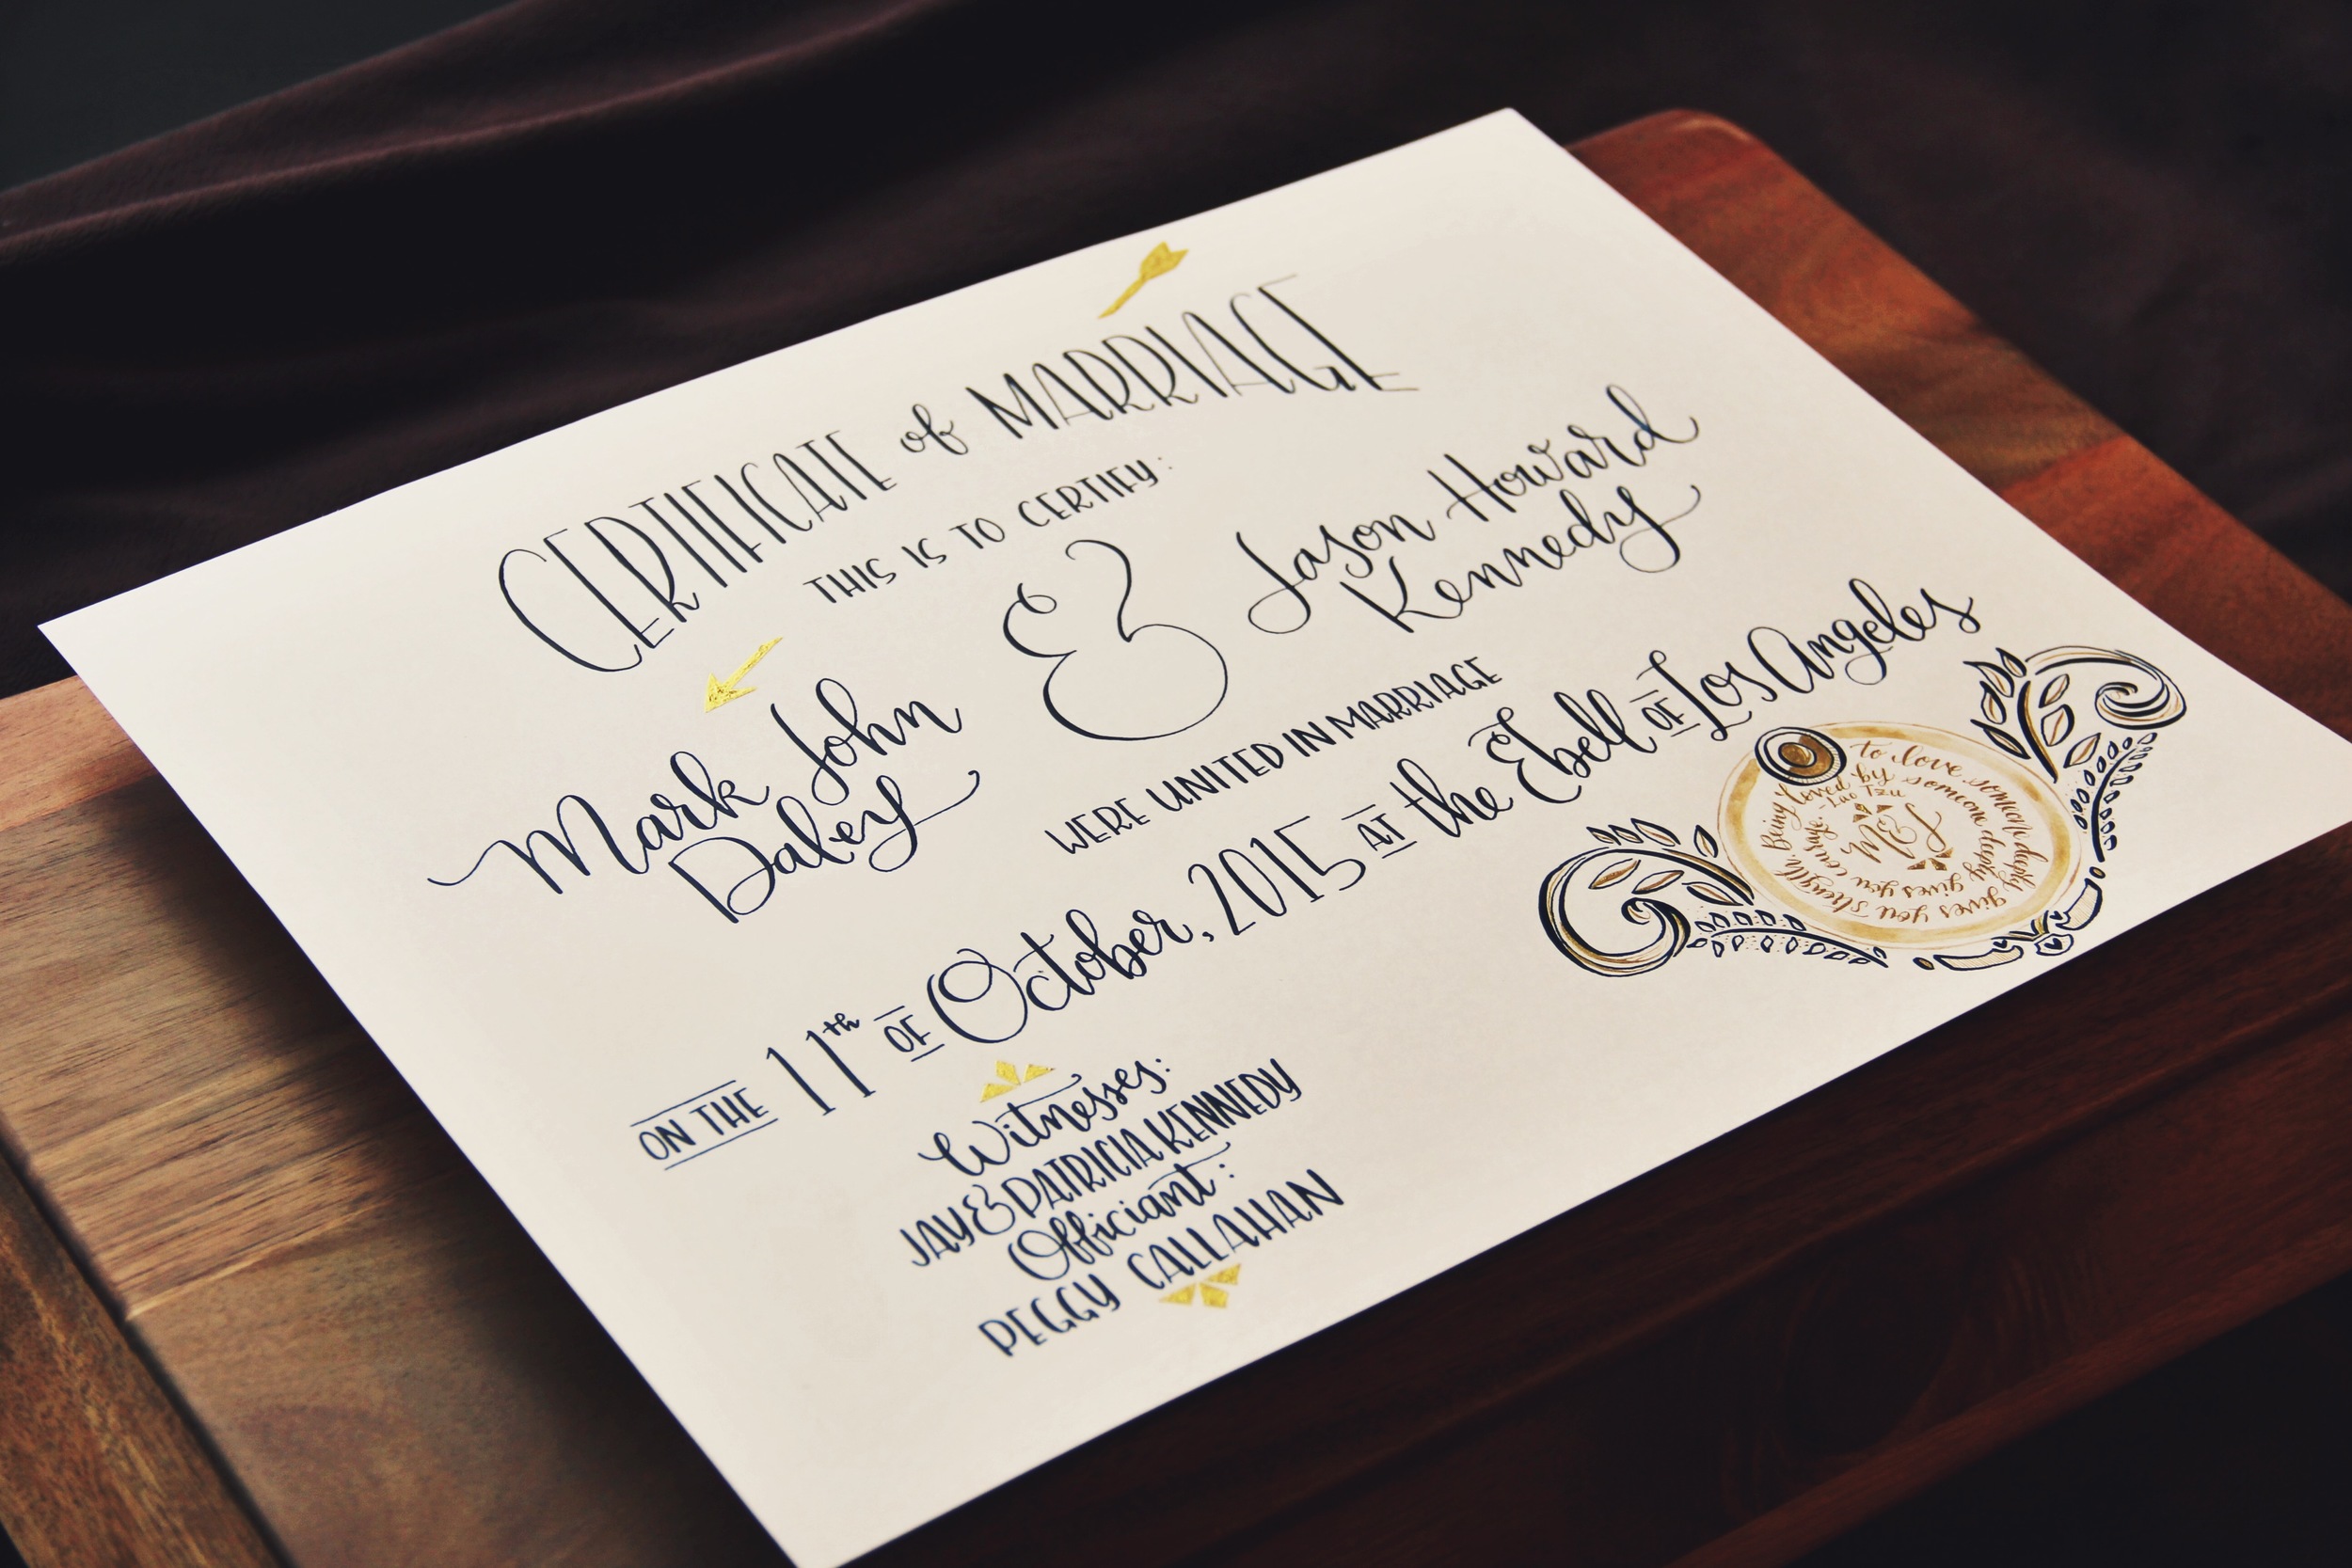 CERTIFICATE of MARRIAGE
THIS IS TO CERTIFY:
Mark John
Daley
&
Jason Howard
Kennedy
WERE UNITED IN MARRIAGE
ON THE 11th OF October, 2015 AT the Ebell OF Los Angeles
Witnesses:
JAY & PATRICIA KENNEDY
Officiant:
PEGGY CALLAHAN
Being loved by someone deeply gives you strength.
to love someone deeply gives you courage.
-Lao Tzu
M & J